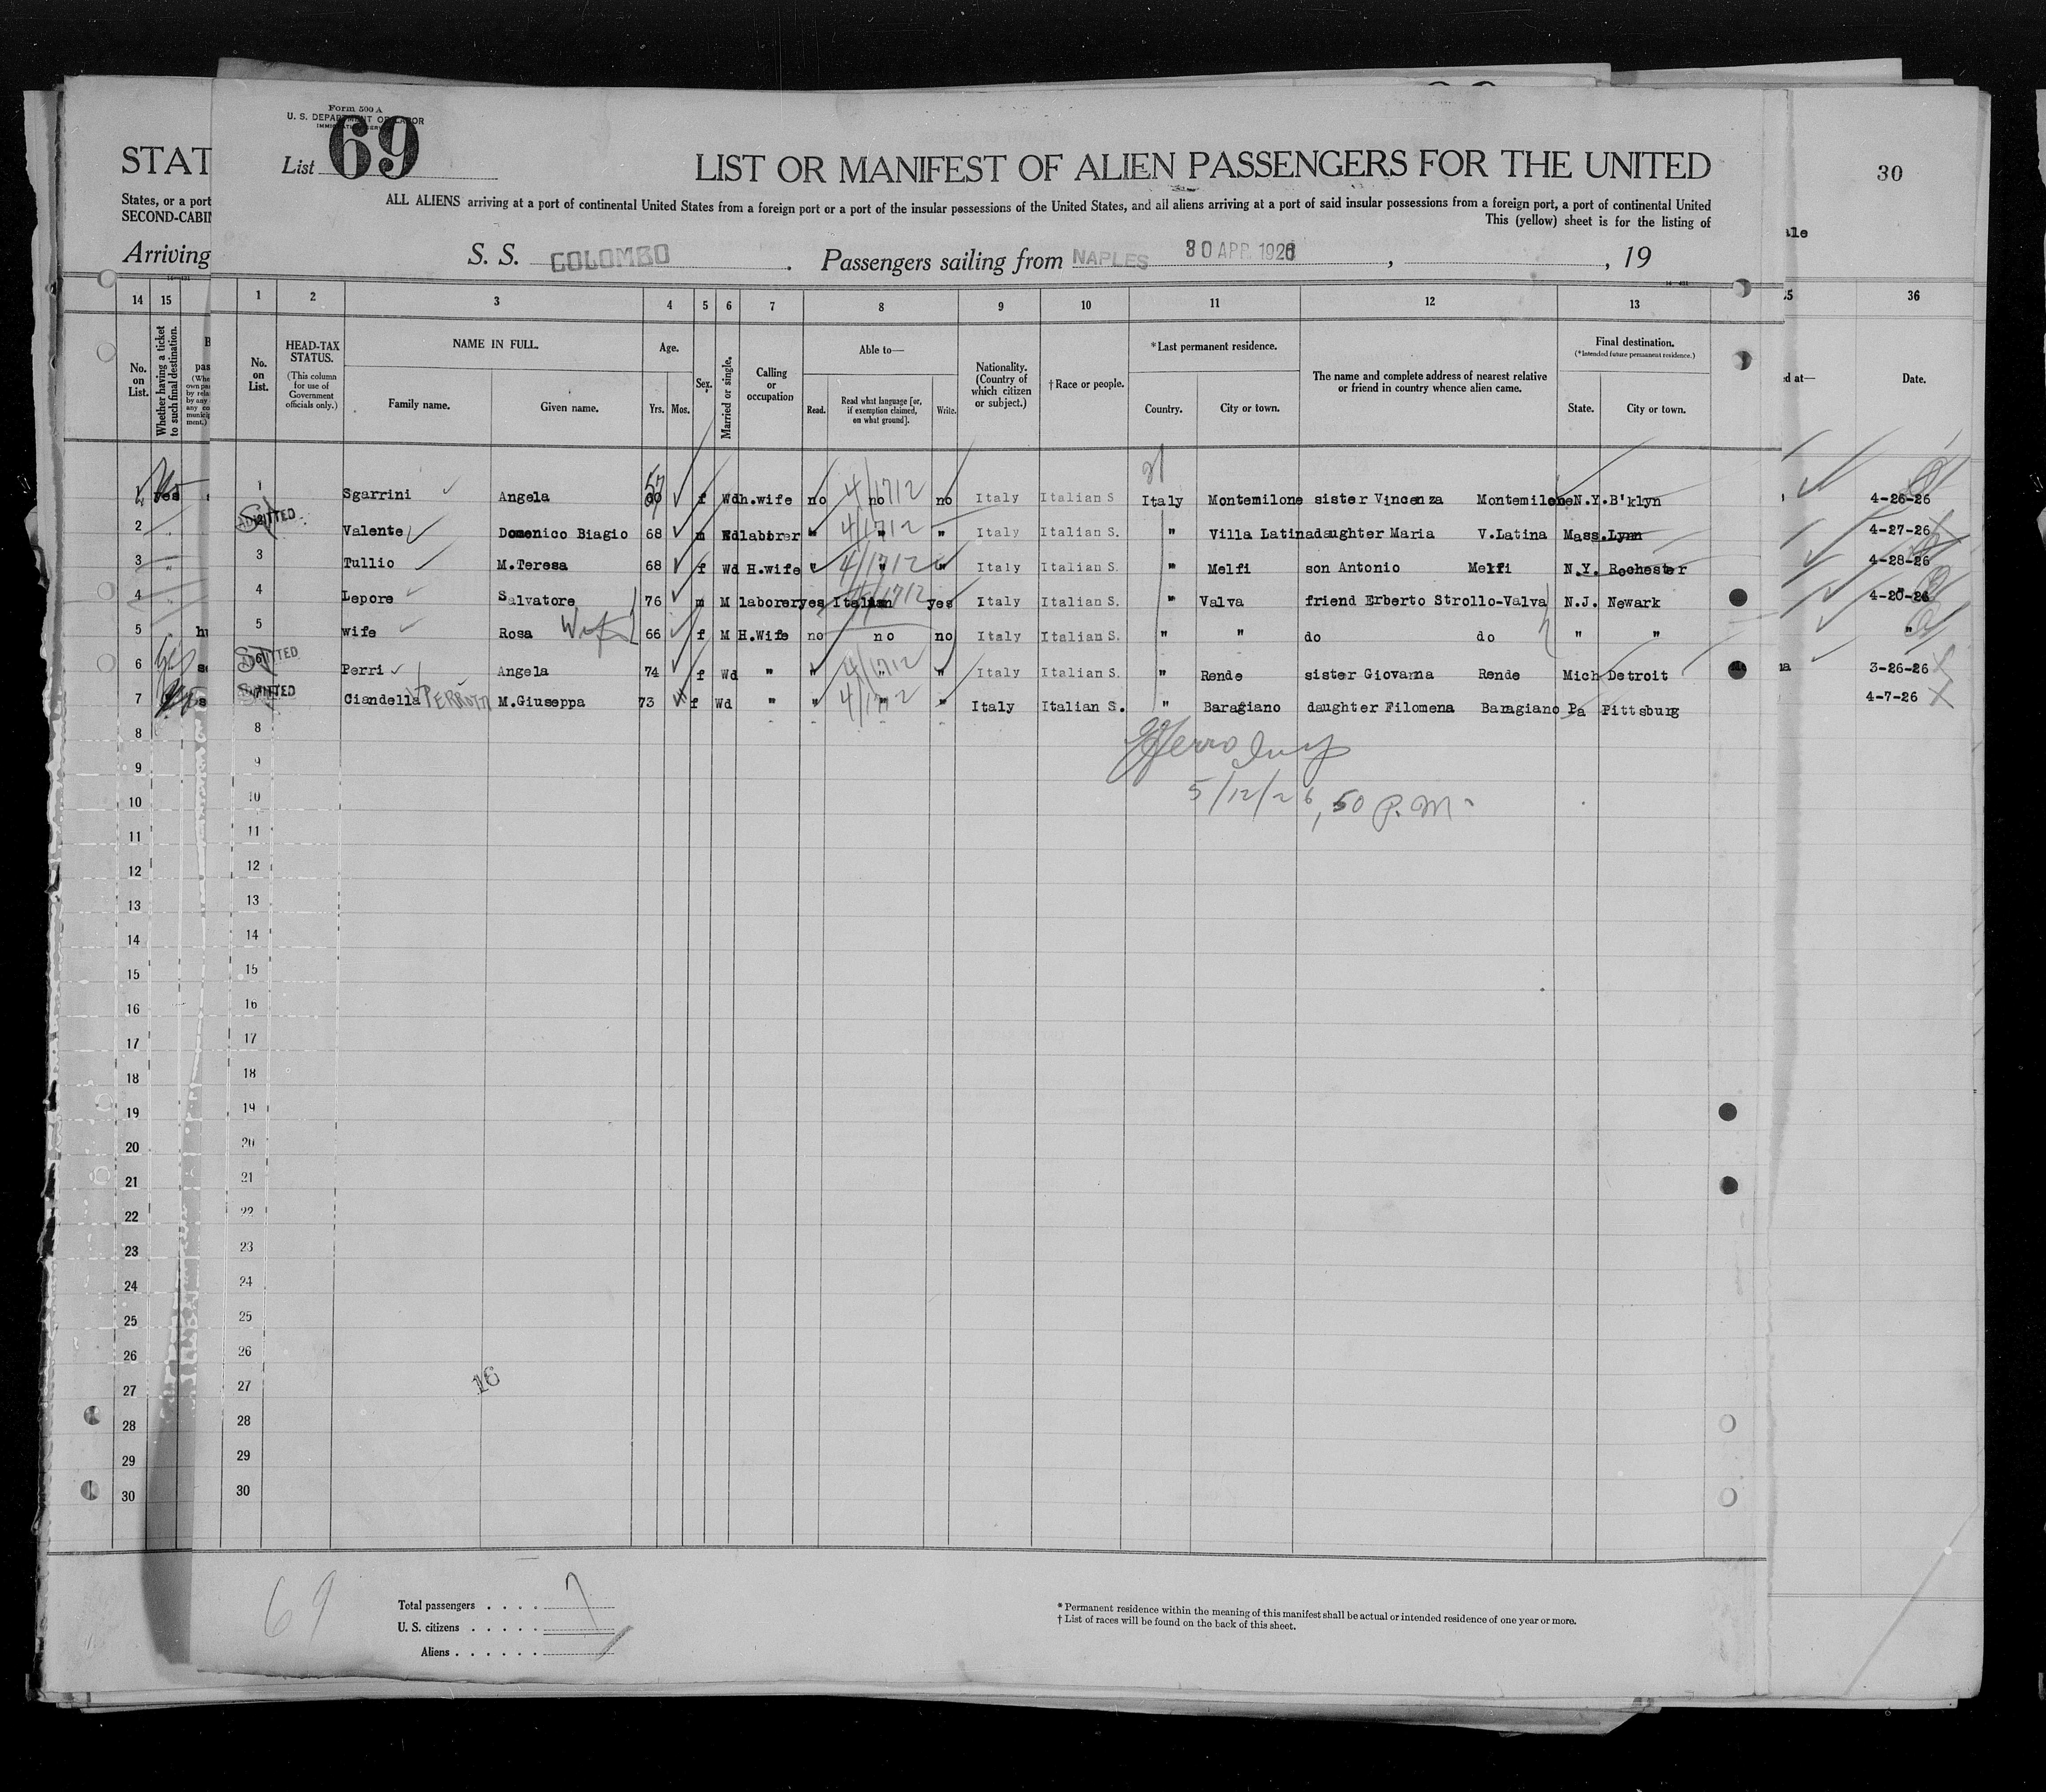 Form 500 A
U. S. DEPARTMENT OF LABOR
List 69
STAT
LIST OR MANIFEST OF ALIEN PASSENGERS FOR THE UNITED
30
States, or a port
SECOND-CABIN
ALL ALIENS arriving at a port of continental United States from a foreign port or a port of the insular possessions of the United States, and all aliens arriving at a port of said insular possessions from a foreign port, a port of continental United
This (yellow) sheet is for the listing of
Arriving
S. S. COLOMBO. Passengers sailing from NAPLES 30 APR 1926, , 19
14 15 1 2 3 4 5 6 7 8 9 10 11 12 13 36
No. on List.
Whether having a ticket to such final destination.
No. on List.
HEAD-TAX STATUS.
(This column for use of Government officials only.)
NAME IN FULL.
Family name. Given name.
Age.
Yrs. Mos.
Sex.
Married or single.
Calling or occupation
Able to—
Read. Read what language [or, if exemption claimed, on what ground]. Write.
Nationality. (Country of which citizen or subject.)
† Race or people.
*Last permanent residence.
Country. City or town.
The name and complete address of nearest relative or friend in country whence alien came.
Final destination.
(*Intended future permanent residence.)
State. City or town.
Date.
1 yes 1 Sgarrini Angela 57 f Wd h.wife no 4/1712 no no Italy Italian S Italy Montemilone sister Vincenza Montemilone N.Y. B'klyn 4-26-26
2 " ADMITTED Valente Domenico Biagio 68 m Wd laborer " 4/1712 " " Italy Italian S. " Villa Latina daughter Maria V.Latina Mass. Lynn 4-27-26
3 " 3 Tullio M.Teresa 68 f Wd H.wife " 4/1712 " " Italy Italian S. " Melfi son Antonio Melfi N.Y. Rochester 4-28-26
4 " 4 Lepore Salvatore 76 m M laborer yes Italian yes Italy Italian S. " Valva friend Erberto Strollo-Valva N.J. Newark 4-20-26
5 " 5 wife Rosa Wife 66 f M H.Wife no no no Italy Italian S. " " do do " " "
6 ADMITTED Perri Angela 74 f Wd " " 4/1712 " " Italy Italian S. " Rende sister Giovanna Rende Mich Detroit 3-26-26
7 ADMITTED Ciandella PERROTTI M.Giuseppa 73 f Wd " " 4/1712 " " Italy Italian S. " Baragiano daughter Filomena Baragiano Pa Pittsburg 4-7-26
8 8
9 9
5/12/26, 50 P.M.
10 10
11 11
12 12
13 13
14 14
15 15
16 16
17 17
18 18
19 19
20 20
21 21
22 22
23 23
24 24
25 25
26 26
27 27 16
28 28
29 29
30 30
69
Total passengers . . . . 7
U. S. citizens . . . . .
Aliens . . . . . .
* Permanent residence within the meaning of this manifest shall be actual or intended residence of one year or more.
† List of races will be found on the back of this sheet.